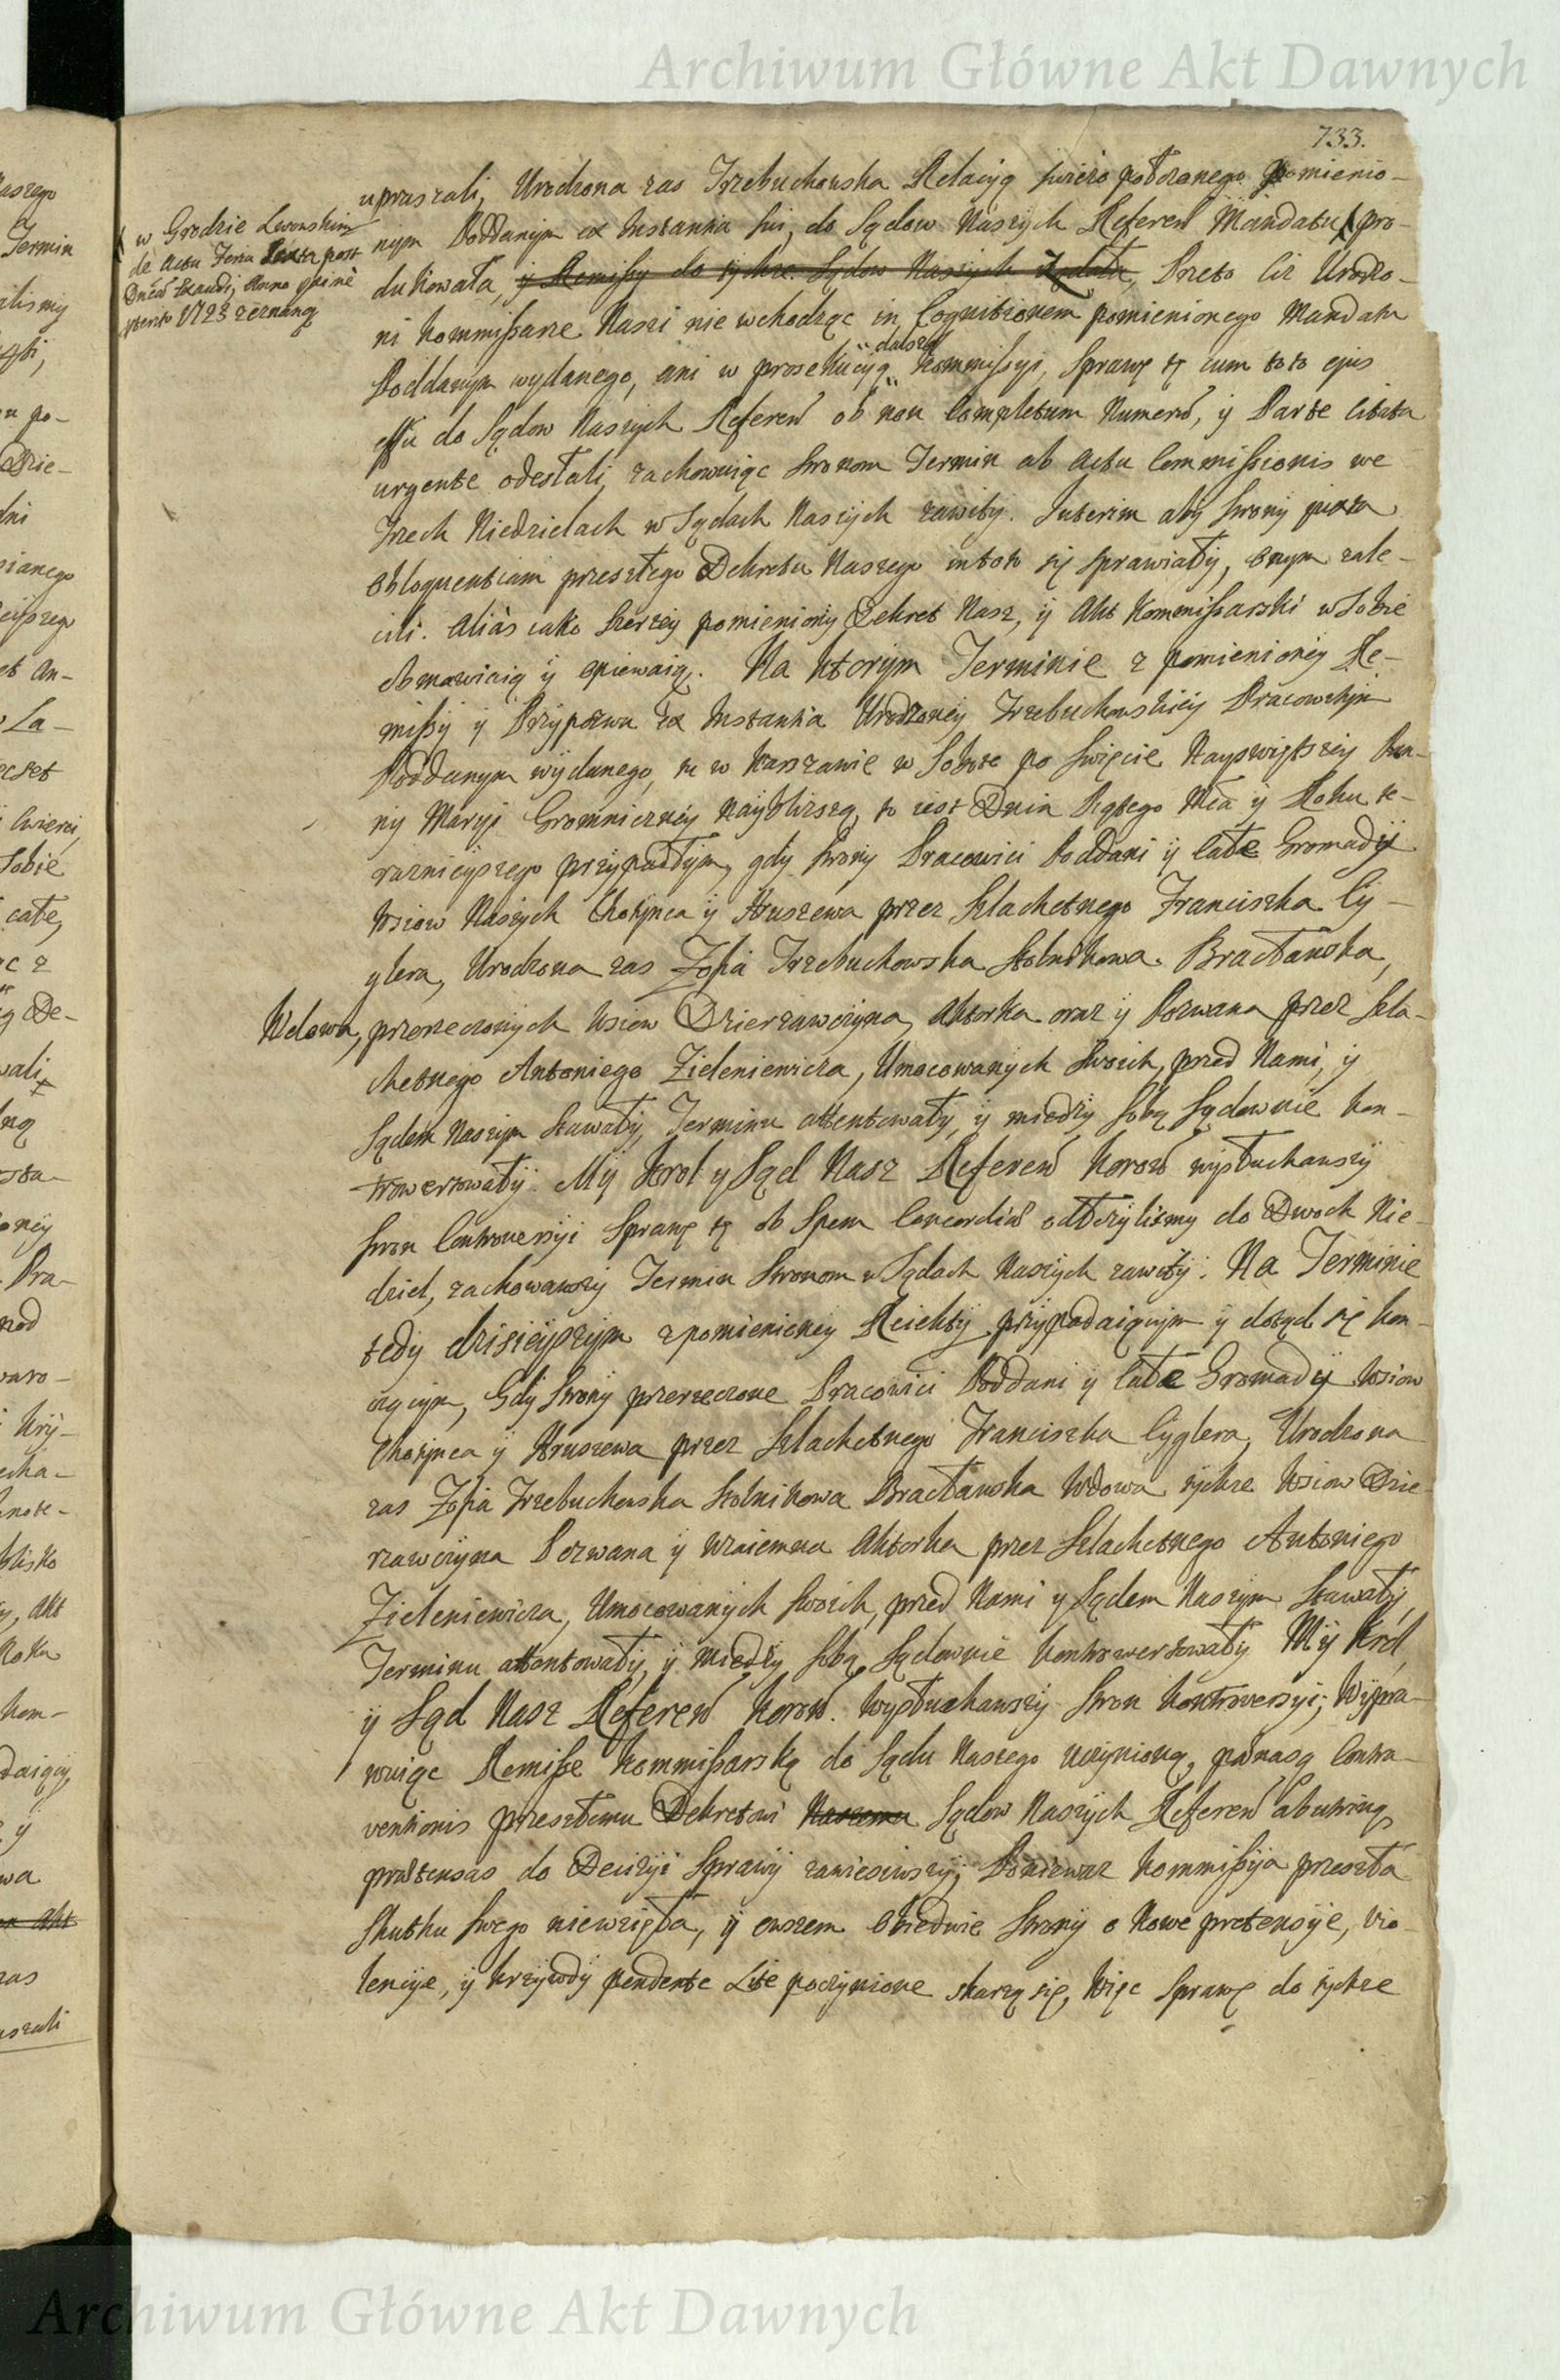 Archiwum Główne Akt Dawnych
733.
upraszali, Urodzona zas Trzebuchowska Relacyą swiezo położonego pomienio-
nym Poddanym ex Instantia sui, do Sądow Naszych Referen Mandatu pro-
w Grodzie Lwowskim
de Actu Feria Sexta post
Dncam Exaudi, Anno
1723 zeznaną
dukowała, y Remissy do tychze Sądow Naszych żądała, Przeto ciz Urodzo-
ni Kommissarze Nasi nie wchodząc in Cognitionem pomienionego Mandatu
Poddanym wydanego, ani w prosekucyą dalszą Kommissyi, Sprawę tę cum toto ejus
effu do Sądow Naszych Referen ob non Completum Numerum, y Parte Citata
urgente odesłali, zachowuiąc stronom Termin ab Actu Commissionis we
Trzech Niedzielach w Sądach Naszych zawity. Interim aby strony juxta
obloquentiam przeszłego Dekretu Naszego intoto się sprawiały, onym zale-
cili. Alias iako szerzey pomieniony Dekret Nasz, y Akt Kommissarski w Sobie
obmawiaią y opiewaią. Na ktorym Terminie z pomienioney Re-
missy y Przypozwu ex Instantia Urodzoney Trzebuchowskiey Pracowitym
Poddanym wydanego, tu w Warszawie w Sobotę po Swięcie Nayswiętszey Pan-
ny Maryi Gromniczney nayblizszą, to iest Dnia Piątego Mca y Roku te-
raznieyszego przypadłym, gdy strony Pracowici Poddani y Całe Gromady
Wsiow Naszych Chotynca y Hruszewa przez Szlachetnego Franciszka Cy-
glera, Urodzona zas Zofia Trzebuchowska Stolnikowa Bracławska,
Wdowa, przerzeczonych Wsiow Dzierzawczyna, Aktorka oraz y Pozwana przez Szla-
chetnego Antoniego Zieleniewicza, Umocowanych swoich, przed Nami, y
Sądem Naszym stawały, Terminu attentowały, y między sobą Sądownie kon-
trowertowały. My Krol y Sąd Nasz Referen Koron wysłuchawszy
stron Controversyi Sprawę tę ob Spem Concordiae odłozylismy do Dwoch Nie-
dziel, zachowawszy Termin stronom w Sądach Naszych zawity. Na Terminie
tedy dzisieyszym z pomienioney Reiekty przypadaiącym y dotąd się kon-
czącym, Gdy strony przerzeczone Pracowici Poddani y Całe Gromady Wsiow
Chotynca y Hruszewa przez Szlachetnego Franciszka Cyglera, Urodzona
zas Zofia Trzebuchowska Stolnikowa Bracławska Wdowa tychze Wsiow Dzie-
rzawczyna Pozwana y wzaiemna Aktorka przez Szlachetnego Antoniego
Zieleniewicza, Umocowanych swoich, przed Nami y Sądem Naszym stawały,
Terminu attentowały, y między sobą Sądownie kontrowertowały My Krol,
y Sąd Nasz Referen Koron. Wysłuchawszy stron Kontroversyi, Wypra-
wuiąc Remisse Kommissarską do Sądu Naszego uczynioną, paenasq Contra-
ventionis przeszłemu Dekretowi Naszemu Sądow Naszych Referen abutrinq
praetensas do Decizyi Sprawy zawiesiwszy, Poniewaz Kommissya przeszła
skutku swego niewzięła, y owszem obiedwie strony o nowe pretensye, vio-
lencye, y krzywdy pendente Lite poczynione skarzą się, Więc Sprawę do tychze
Archiwum Główne Akt Dawnych